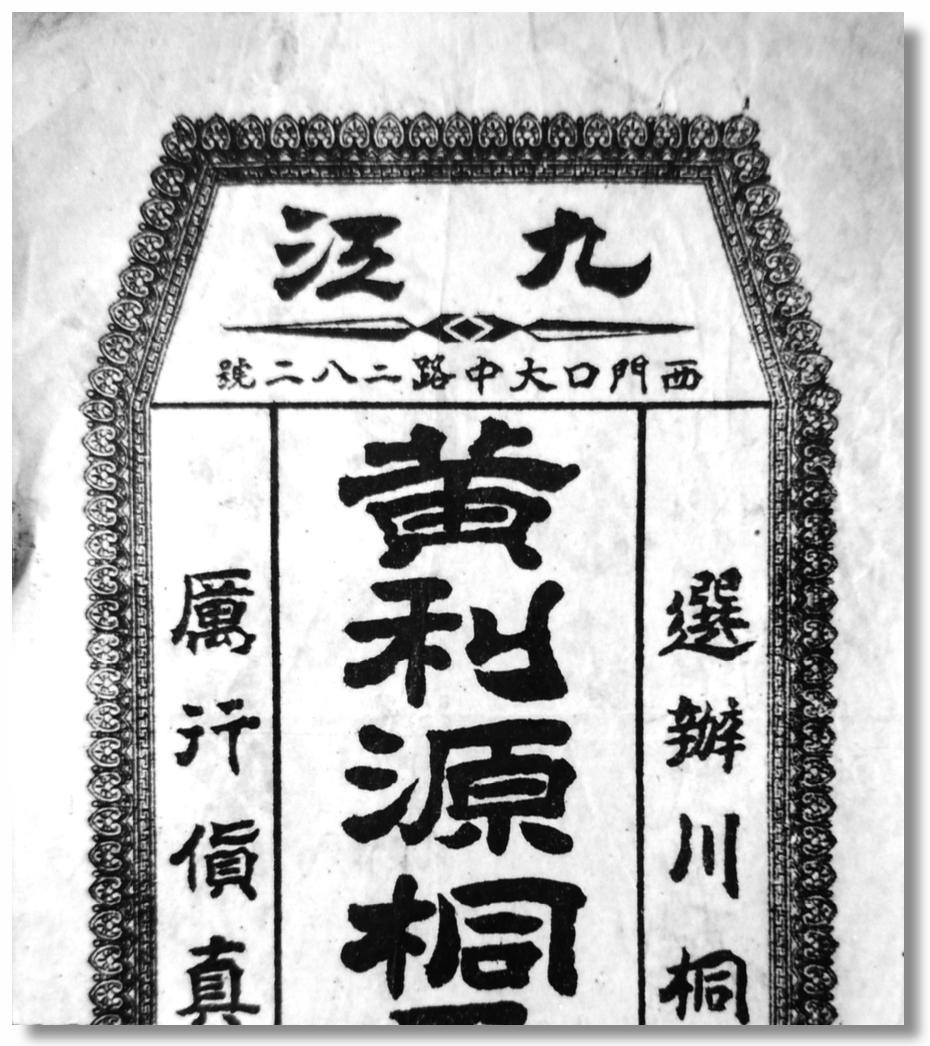 九江
西門口大中路二八二號
選辦川桐
黃利源桐
厲行貨真